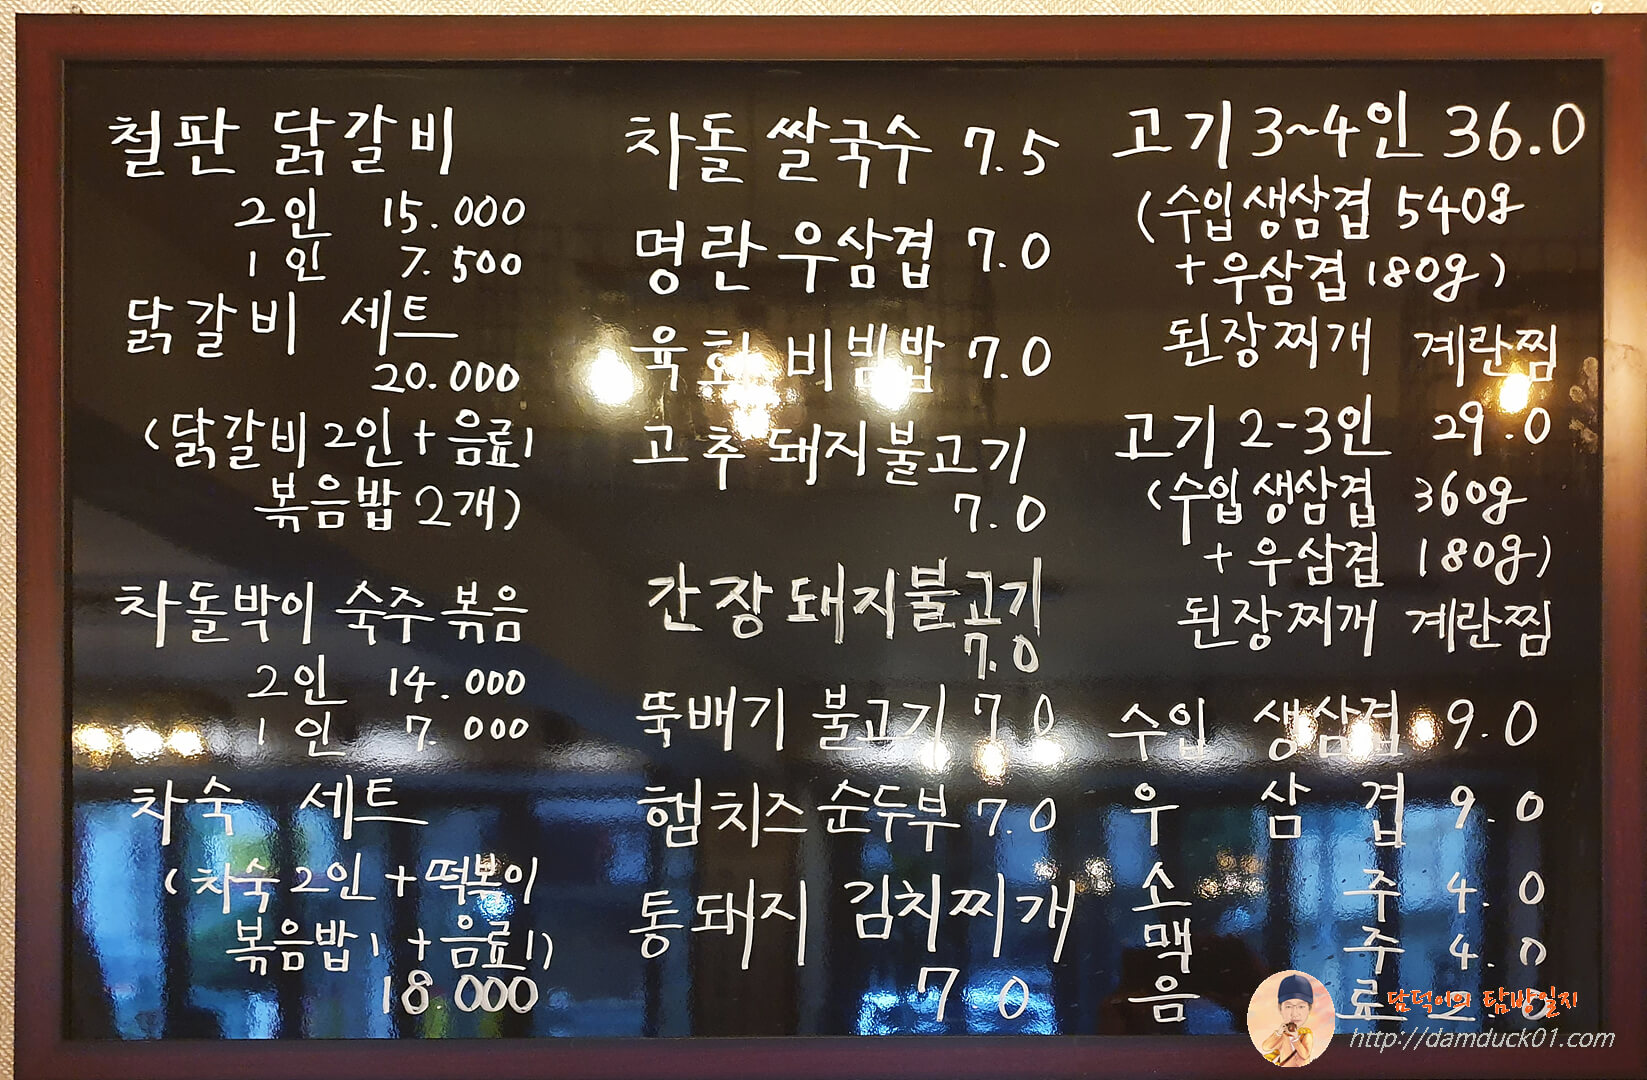 철판 닭갈비
2인 15.000
1인 7.500
닭갈비 세트
20.000
(닭갈비 2인 + 음료1
볶음밥 2개)
차돌박이 숙주 볶음
2인 14.000
1인 7.000
차숙 세트
(차숙 2인 + 떡볶이
볶음밥1 + 음료1)
18 000
차돌 쌀국수 7.5
명란 우삼겹 7.0
육회 비빔밥 7.0
고추 돼지불고기
7.0
간장 돼지불고기
7.0
뚝배기 불고기 7.0
햄치즈 순두부 7.0
통돼지 김치찌개
7 0
고기 3~4인 36.0
(수입생삼겹 540g
+ 우삼겹 180g)
된장찌개 계란찜
고기 2-3인 29.0
(수입생삼겹 360g
+ 우삼겹 180g)
된장찌개 계란찜
수입 생삼겹 9.0
우 삼 겹 9.0
소 주 4.0
맥 주 4.0
음 료 2.0
담덕이의 탐방일지
http://damduck01.com